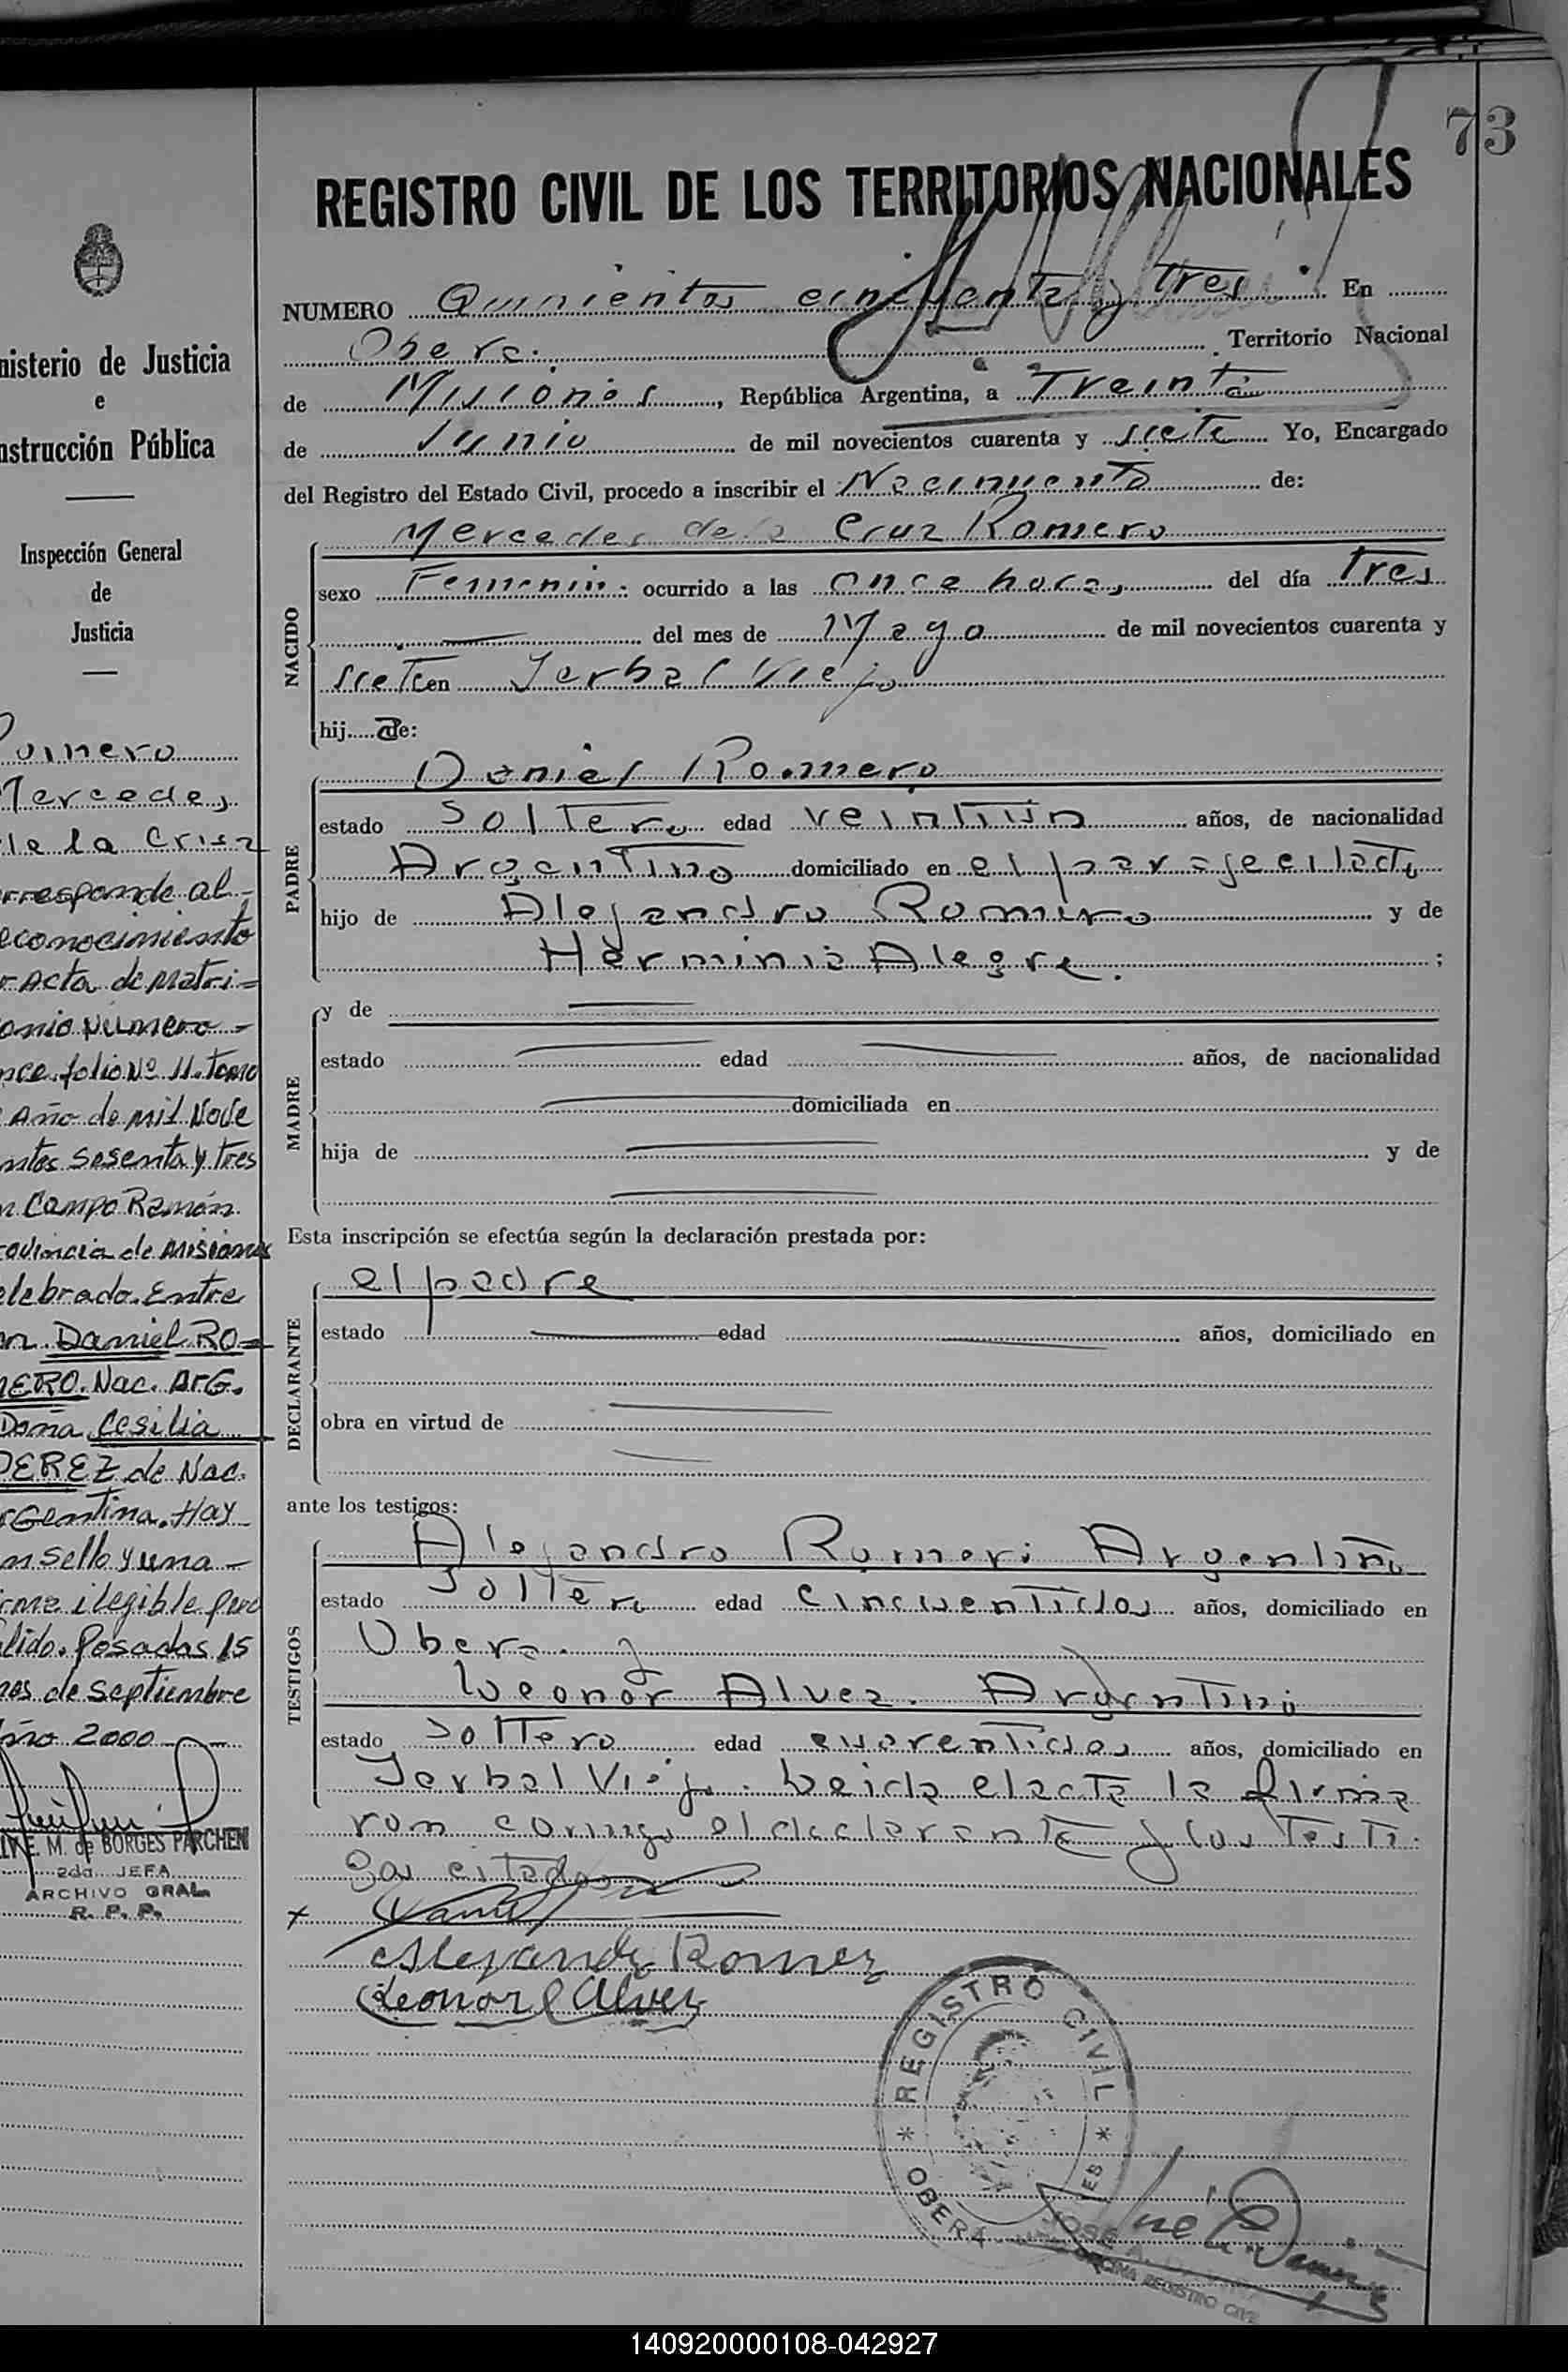 73
REGISTRO CIVIL DE LOS TERRITORIOS NACIONALES
NUMERO Quinientos cincuenta y tres En
Oberá Territorio Nacional
de Misiones, República Argentina, a Treinta
de Junio de mil novecientos cuarenta y siete Yo, Encargado
del Registro del Estado Civil, procedo a inscribir el Nacimiento de:
NACIDO
Mercedes de la Cruz Romero
sexo Femenino ocurrido a las once horas, del día Tres
del mes de Mayo de mil novecientos cuarenta y
siete en Yerbal Viejo
hij a de:
PADRE
Daniel Romero
estado Soltero edad veintiún años, de nacionalidad
Argentino domiciliado en el paraje citado
hijo de Alejandro Romero y de
Herminia Alegre. ;
MADRE
y de
estado edad años, de nacionalidad
domiciliada en
hija de y de
Esta inscripción se efectúa según la declaración prestada por:
DECLARANTE
el padre
estado edad años, domiciliado en
obra en virtud de
ante los testigos:
TESTIGOS
Alejandro Romero Argentino
estado Soltero edad cincuentidos años, domiciliado en
Oberá. y
Leonor Alvez. Argentino
estado soltero edad cuarentidos años, domiciliado en
Yerbal Viejo. Leida el acta la firma
ron conmigo el declarante y los testi
gos citados
x Daniel
Alejandro Romero
Leonor Alvez
REGISTRO CIVIL
OBERÁ
JOSE
OFICINA REGISTRO CIVIL
nisterio de Justicia
e
nstrucción Pública
Inspección General
de
Justicia
Romero
Mercedes
de la Cruz
rresponde al
econocimiento
r Acta de Matri=
onio Numero -
nce. folio Nº 11. Tomo
Año de mil Nove
ntos sesenta y tres
n Campo Ramón
rovincia de Misiones
elebrado. Entre
on Daniel RO=
MERO. Nac. ArG.
Doña Cesilia
PEREZ de Nac.
rGentina. Hay
un sello y una -
irma ilegible pero
lido. Posadas 15
nes de septiembre
Año 2000
E. M. de BORGES PARCHEN
2da. JEFA
ARCHIVO GRAL.
R. P. P.
140920000108-042927